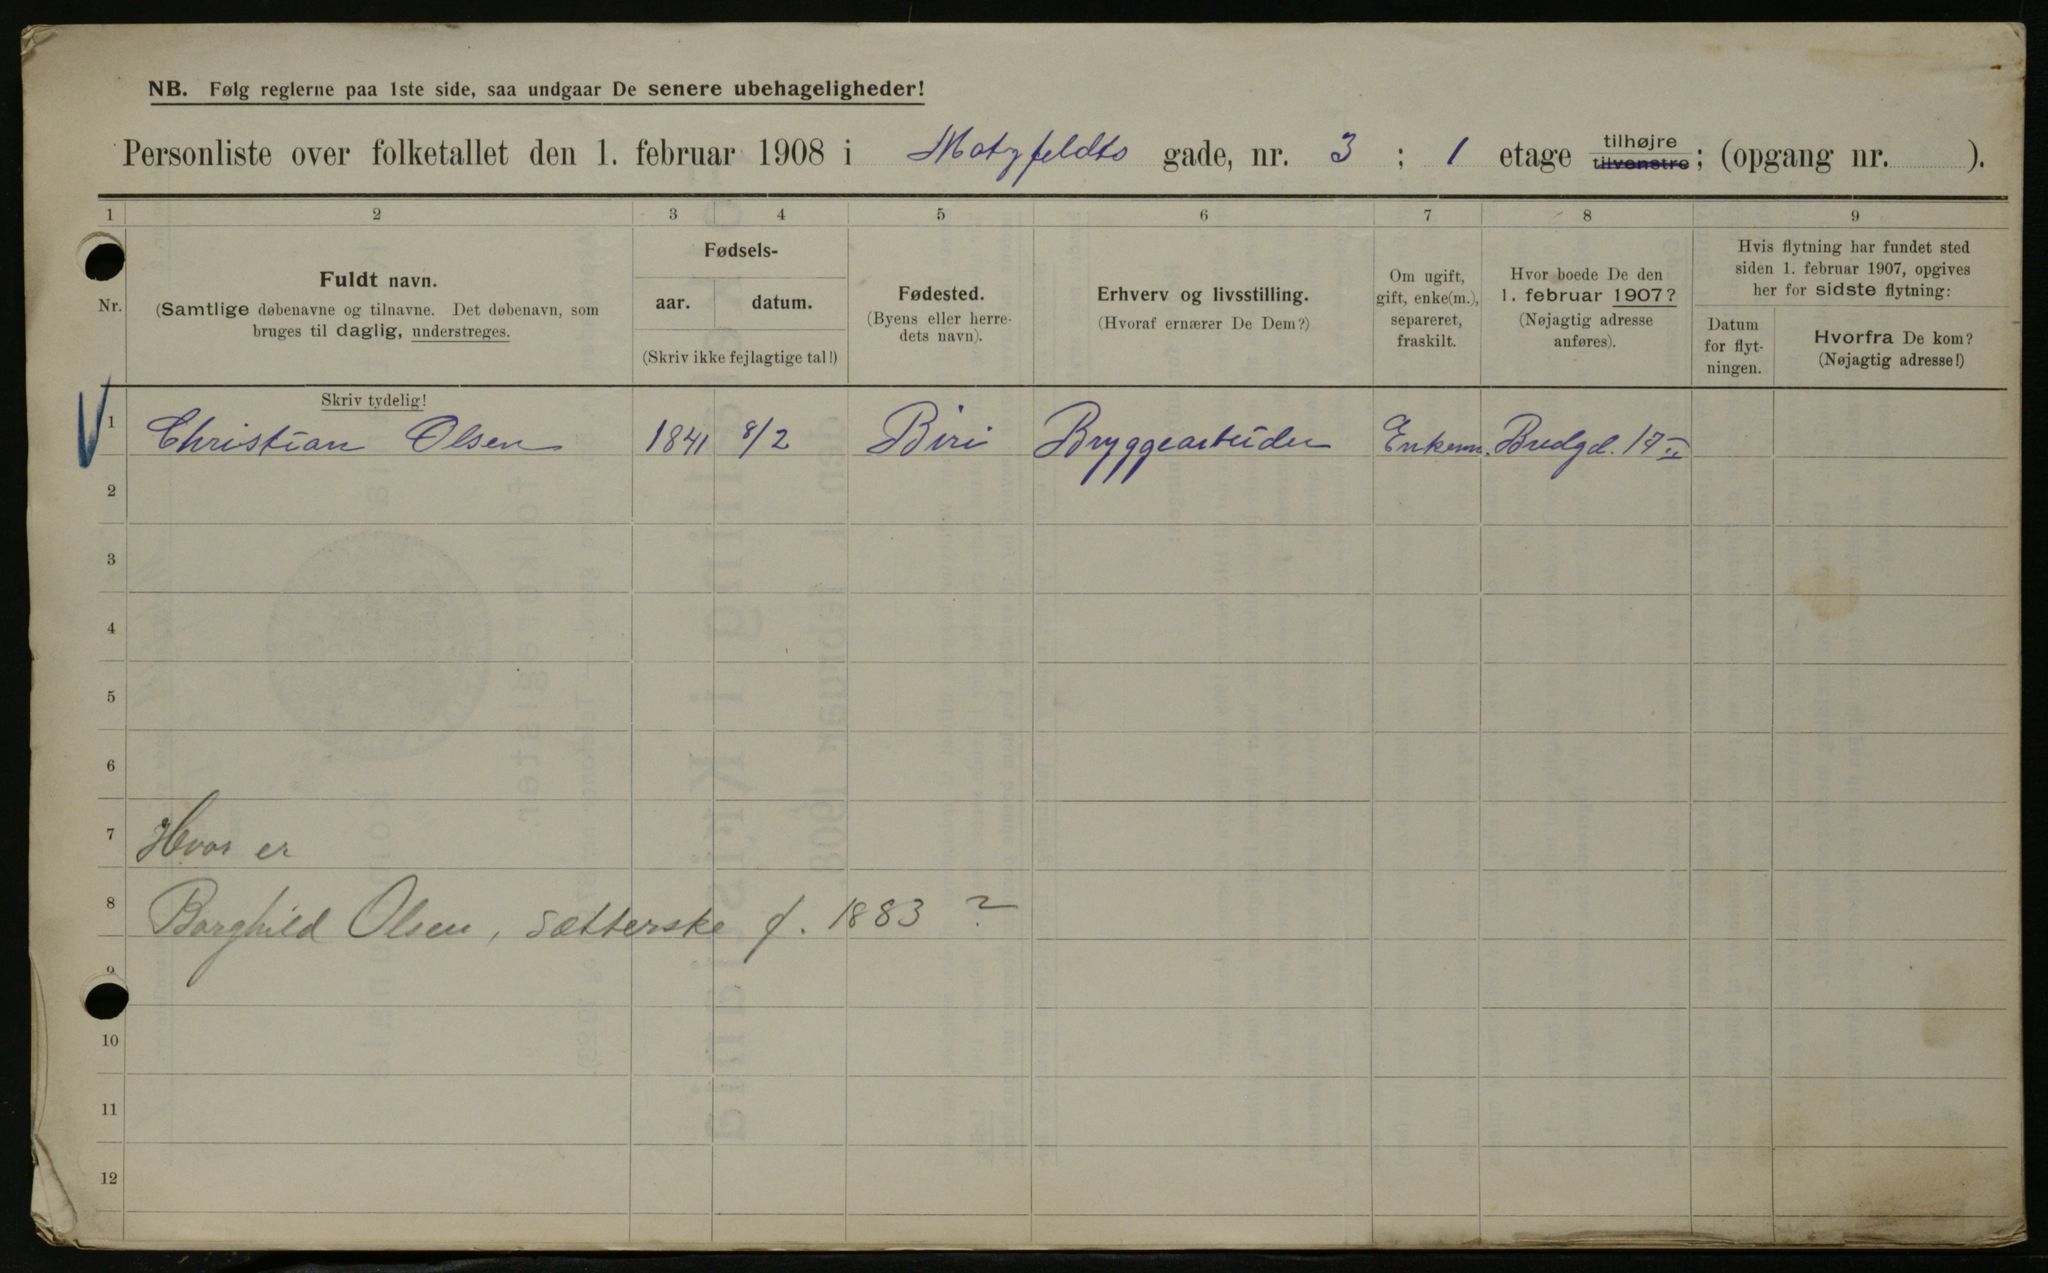 NB. Følg reglerne paa 1ste side, saa undgaar De senere ubehageligheder!
Personliste over folketallet den 1. februar 1908 i Matzfeldts gade, nr. 3 ; 1 etage tilhøjre tilvenstre ; (opgang nr. ).
1 2 3 4 5 6 7 8 9
Nr.
Fuldt navn.
(Samtlige døbenavne og tilnavne. Det døbenavn, som
bruges til daglig, understreges.
Skriv tydelig!
Fødsels-
aar. datum.
(Skriv ikke fejlagtige tal!)
Fødested.
(Byens eller herre-
dets navn).
Erhverv og livsstilling.
(Hvoraf ernærer De Dem?)
Om ugift,
gift, enke(m.),
separeret,
fraskilt.
Hvor boede De den
1. februar 1907?
(Nøjagtig adresse
anføres).
Hvis flytning har fundet sted
siden 1. februar 1907, opgives
her for sidste flytning:
Datum
for flyt-
ningen.
Hvorfra De kom?
(Nøjagtig adresse!)
1 Christian Olsen 1841 8/2 Biri Bryggearbeider Enkem. Bredgd. 17 II
2
3
4
5
6
7 Hvor er
8 Borghild Olsen, sætterske f. 1883 ?
9
10
11
12